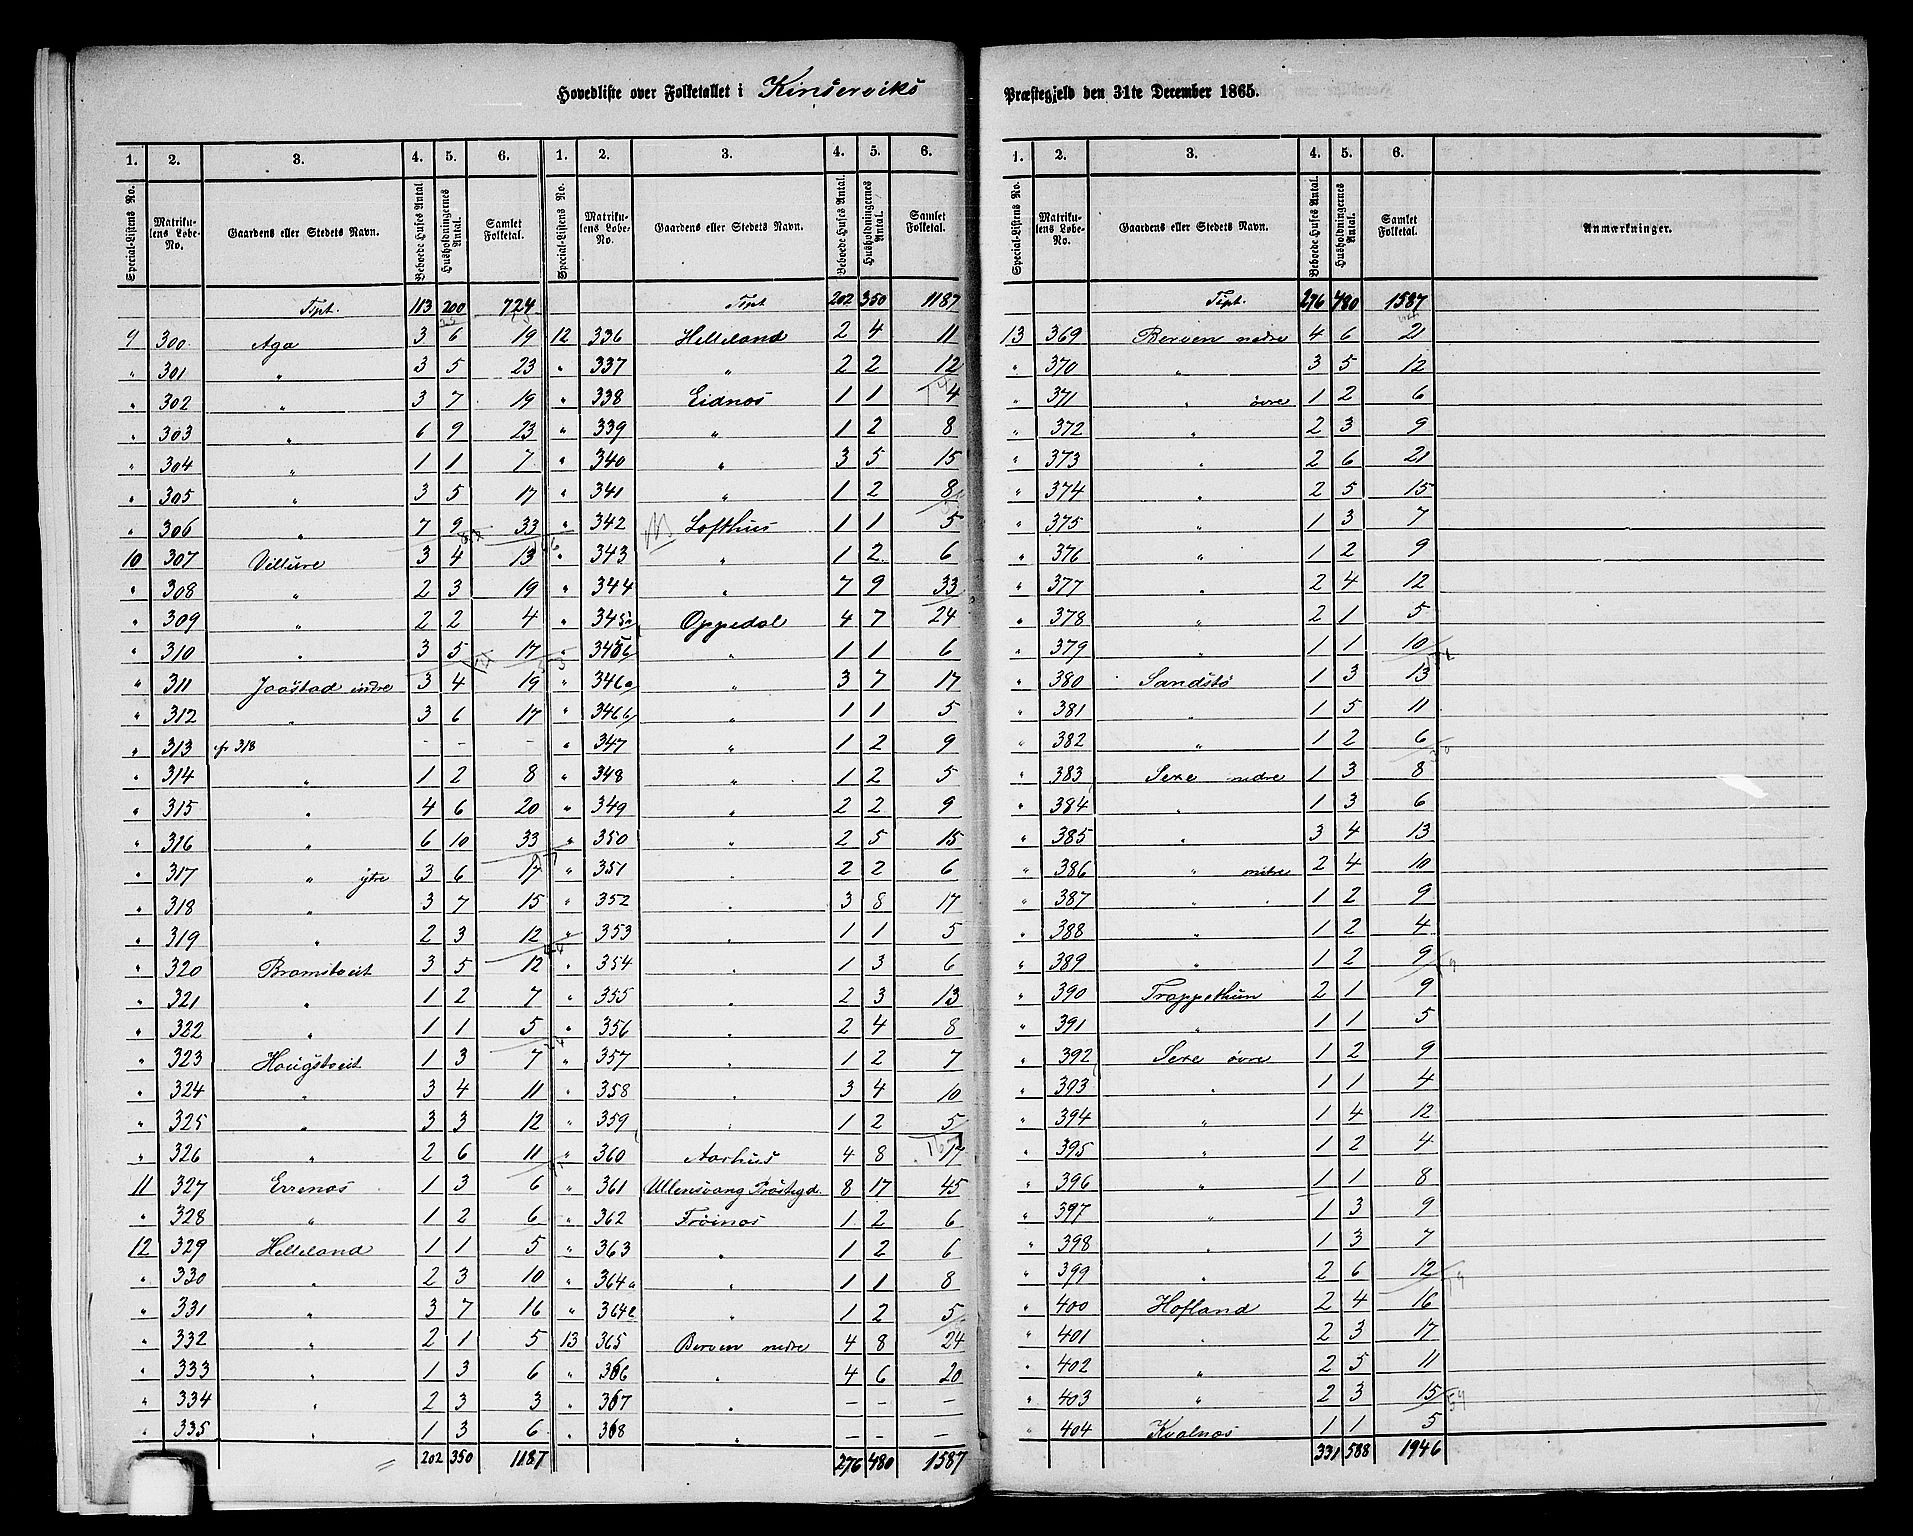 Hovedliste over Folketallet i Kinserviks Præstegjeld den 31te December 1865.
1. 2. 3. 4. 5. 6. 1. 2. 3. 4. 5. 6.
Special-Listens No. Matrikulens Løbe-No. Gaardens eller Stedets Navn. Beboede Huses Antal. Husholdningernes Antal. Samlet Folketal. Special-Listens No. Matrikulens Løbe-No. Gaardens eller Stedets Navn. Beboede Huses Antal. Husholdningernes Antal. Samlet Folketal.
Tspt. 113 200 724 Tspt 202 350 1187
9 300 Aga 3 6 19 12 336 Helleland 2 4 11
" 301 " 3 5 23 " 337 " 2 2 12
" 302 " 3 7 19 " 338 Eidnes 1 1 4
" 303 " 6 9 23 " 339 " 1 2 8
" 304 " 1 1 7 " 340 " 3 5 15
" 305 " 3 5 17 " 341 " 1 2 8
" 306 " 7 9 33 " 342 Lofthus 1 1 5
10 307 Villure 3 4 13 " 343 " 1 2 6
" 308 " 2 3 19 " 344 " 7 9 33
" 309 " 2 2 4 " 345a Oppedal 4 7 24
" 310 " 3 5 17 " 345b " 1 1 6
" 311 Jaastad indre 3 4 19 " 346a " 3 7 17
" 312 " 3 6 17 " 346b " 1 1 5
" 313 cfr 318 - - - " 347 " 1 2 9
" 314 " 1 2 8 " 348 " 1 2 5
" 315 " 4 6 20 " 349 " 2 2 9
" 316 " 6 10 33 " 350 " 2 5 15
" 317 " ytre 3 6 17 " 351 " 2 2 6
" 318 " 3 7 15 " 352 " 3 8 17
" 319 " 2 3 12 " 353 " 1 1 5
" 320 Bramstveit 3 5 12 " 354 " 1 3 6
" 321 " 1 2 7 " 355 " 2 3 13
" 322 " 1 1 5 " 356 " 2 4 8
" 323 Hougstveit 1 3 7 " 357 " 1 2 7
" 324 " 3 4 11 " 358 " 3 4 10
" 325 " 3 3 12 " 359 " 1 2 5
" 326 " 2 6 11 " 360 Aarhus 4 8 17
11 327 Errenæs 1 3 6 " 361 Ullensvang Præstegd. 8 17 45
" 328 " 1 2 6 " 362 Frøinæs 1 2 6
12 329 Helleland 1 1 5 " 363 " 1 2 6
" 330 " 2 3 10 " 364a " 1 1 8
" 331 " 3 7 16 " 364b " 1 2 5
" 332 " 2 1 5 13 365 Berven nedre 4 8 24
" 333 " 1 3 6 " 366 " 4 6 20
" 334 " 2 3 3 " 367 " - - -
" 335 " 1 3 6 " 368 " - - -
202 350 1187 276 480 1587
1. 2. 3. 4. 5. 6.
Special-Listens No. Matrikulens Løbe-No. Gaardens eller Stedets Navn. Beboede Huses Antal. Husholdningernes Antal. Samlet Folketal. Anmærkninger.
Tspt. 276 480 1587
13 369 Berven nedre 4 6 21
" 370 " 3 5 12
" 371 " øvre 1 2 6
" 372 " 2 3 9
" 373 " 2 6 21
" 374 " 2 5 15
" 375 " 1 3 7
" 376 " 1 2 9
" 377 " 2 4 12
" 378 " 2 1 5
" 379 " 1 1 10
" 380 Sandstø 1 3 13
" 381 " 1 5 11
" 382 " 1 2 6
" 383 Sexe nedre 1 3 8
" 384 " 1 3 6
" 385 " 3 4 13
" 386 " mitre 2 4 10
" 387 " " 1 2 9
" 388 " 1 2 4
" 389 " 1 2 9
" 390 Trappethun 2 1 9
" 391 " 1 1 5
" 392 Sexe øvre 1 2 9
" 393 " 1 1 4
" 394 " 1 4 12
" 395 " 1 2 4
" 396 " 1 1 8
" 397 " 1 3 9
" 398 " 1 3 7
" 399 " 2 6 12
" 400 Hofland 2 4 16
" 401 " 2 3 17
" 402 " 2 5 11
" 403 " 2 3 15
" 404 Kvalnæs 1 1 5
331 588 1946